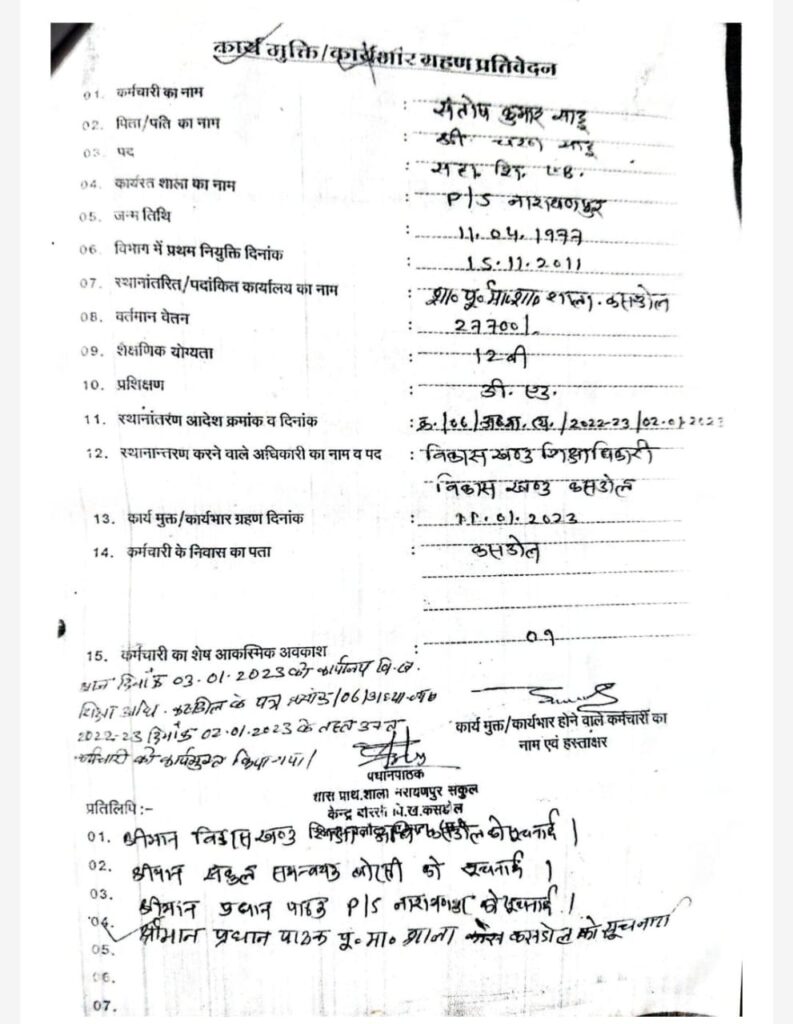 कार्य मुक्ति/कार्यभार ग्रहण प्रतिवेदन
01. कर्मचारी का नाम : संतोष कुमार साहू
02. पिता/पति का नाम : श्री चरण साहू
03. पद : सहा. शि. एल.B.
04. कार्यरत शाला का नाम : P/S नारायणपुर
05. जन्म तिथि : 11.04.1977
06. विभाग में प्रथम नियुक्ति दिनांक : 15.11.2011
07. स्थानांतरित/पदांकित कार्यालय का नाम : शा० पू. मा. शा० शाला. कसडोल
08. वर्तमान वेतन : 27700/.
09. शैक्षणिक योग्यता : 12 वी
10. प्रशिक्षण : डी. एड.
11. स्थानांतरण आदेश क्रमांक व दिनांक : क्र./06/ /2022-23/02.01.2023
12. स्थानान्तरण करने वाले अधिकारी का नाम व पद : विकास खण्ड शिक्षाधिकारी
विकास खण्ड कसडोल
13. कार्य मुक्त/कार्यभार ग्रहण दिनांक : 11.01.2023
14. कर्मचारी के निवास का पता : कसडोल
15. कर्मचारी का शेष आकस्मिक अवकाश : 09
आज दिनांक 03.01.2023 को कार्यालय वि.ख.
शिक्षा अधि. कसडोल के पत्र क्रमांक/06/
2022-23 दिनांक 02.01.2023 के तहत उक्त
कर्मचारी को कार्यमुक्त किया गया।
कार्य मुक्त/कार्यभार होने वाले कर्मचारी का
नाम एवं हस्ताक्षर
प्रधानपाठक
शास प्राथ.शाला नारायणपुर सकुल
केन्द्र वि.ख.कसडोल
प्रतिलिपि :-
01. श्रीमान विकास खण्ड कसडोल को सूचनार्थ।
02. श्रीमान संकुल समन्वयक को सूचनार्थ।
03. श्रीमान प्रधान पाठक P/S नारायणपुर को सूचनार्थ।
04. श्रीमान प्रधान पाठक पू० मा० शाला कसडोल को सूचनार्थ
05.
06.
07.